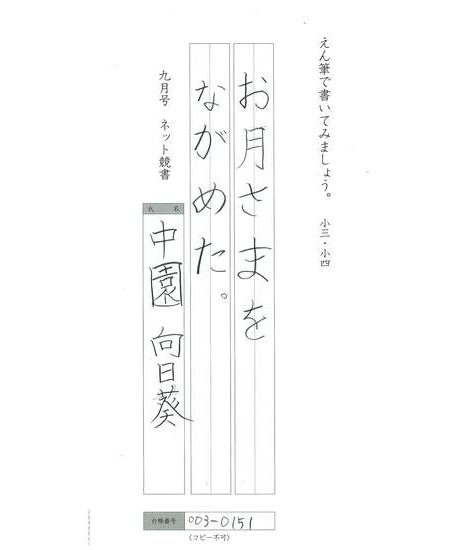 えん筆で書いてみましょう。 小三・小四
お月さまを
ながめた。
九月号 ネット競書
氏名
中園 向日葵
合格番号 003-0151
(コピー不可)